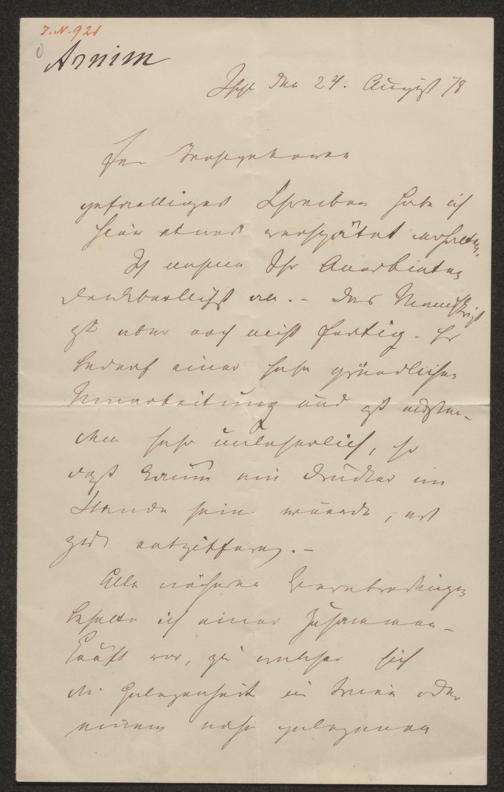 J.N. 921
Arnim
Ischl den 24. August 78
Euer Hochgeboren
gefälliges Schreiben habe ich
hier etwas verspätet erhalten.
Ich nehme Ihr Anerbieten
dankbarlichst an. – Das Manuskript
ist aber noch nicht fertig. Es
bedarf einer sehr gründlichen
Umarbeitung und ist
sehr unleserlich, so
daß kaum ein Drucker im
Stande sein würde, es
zu entziffern. –
Alle näheren
behalte ich einer Zusammen-
kunft vor, zu welcher sich
die Gelegenheit in Wien oder
einem nahe gelegenen